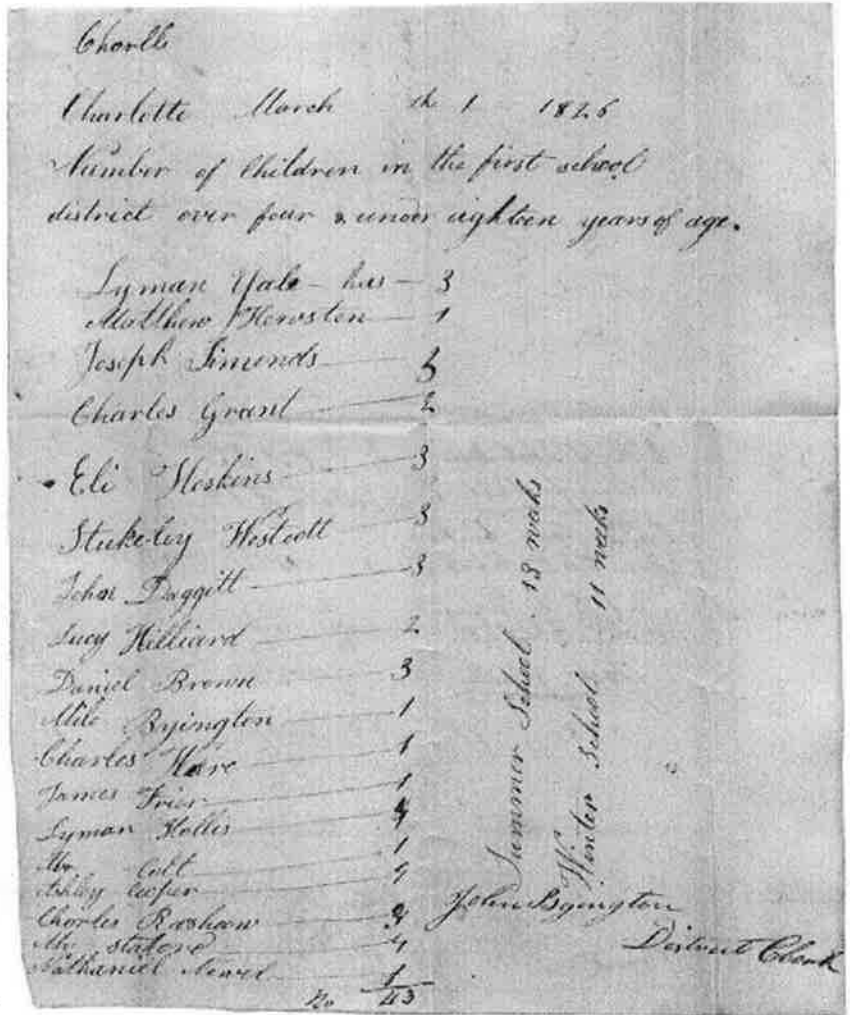 Charlb
Charlotte March the 1 1826
Number of Children in the first school
district over four & under eighteen years of age.
Lyman Yale - has - 3
Matthew 1
Joseph Simonds 3
Charles Grant 2
Eli Hoskins 3
Stukeley Westcott 3
John Daggitt 3
Lucy Hilliard 2
Daniel Brown 3
Milo Byington 1
Charles Hare 1
James Frier 1
Lyman Hollis 4
Mr Colt 1
Ashley Cooper
Charles
Mr
Nathaniel 1
No 43
Summer School 13 weeks
Winter School 11 weeks
John Byington
District Clerk